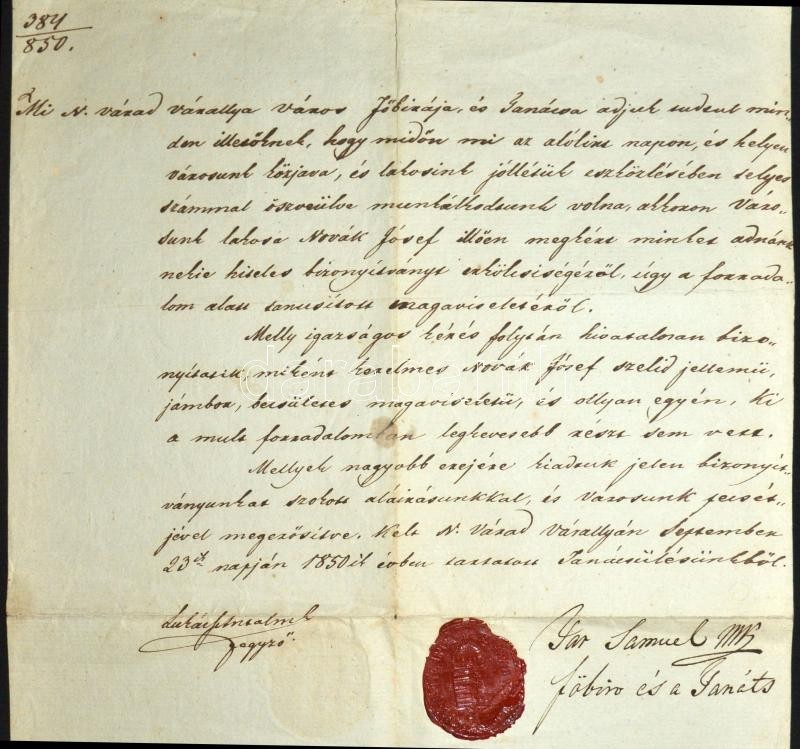 384
850.
Mi N. Várad várallya város Főbirája, és Tanácsa adjuk tudtul min-
den illetőknek, hogy midőn mi az alólirt napon, és helyen
városunk közjava, és lakosink jóllétük eszközlésében teljes
számmal öszveülve munkálkodtunk volna, akkoron Váro-
sunk lakosa Novák Jósef illően megkért minket adnánk
nekie hiteles bizonyítványt erkölcsiségéről, úgy a forrada-
lom alatt tanusított magaviseletéről.
Melly igazságos kérés folytán hivatalosan bizo-
nyítatik, miként kérelmes Novák Jósef szelid jellemü,
jámbor, becsületes magaviseletü, és ollyan egyén, ki
a mult forradalomban legkevesebb részt sem vett.
Mellyek nagyobb erejére kiadtuk jelen bizonyít-
ványunkat szokott aláirásunkkal, és városunk pecsét-
jével megerősítve. Kelt N. Várad Várallyán September
23ik napján 1850ik évben tartatott Tanácsülésünkből.
Lukács Antal mk
jegyző.
Tar Samuel MK
főbiro és a Tanáts